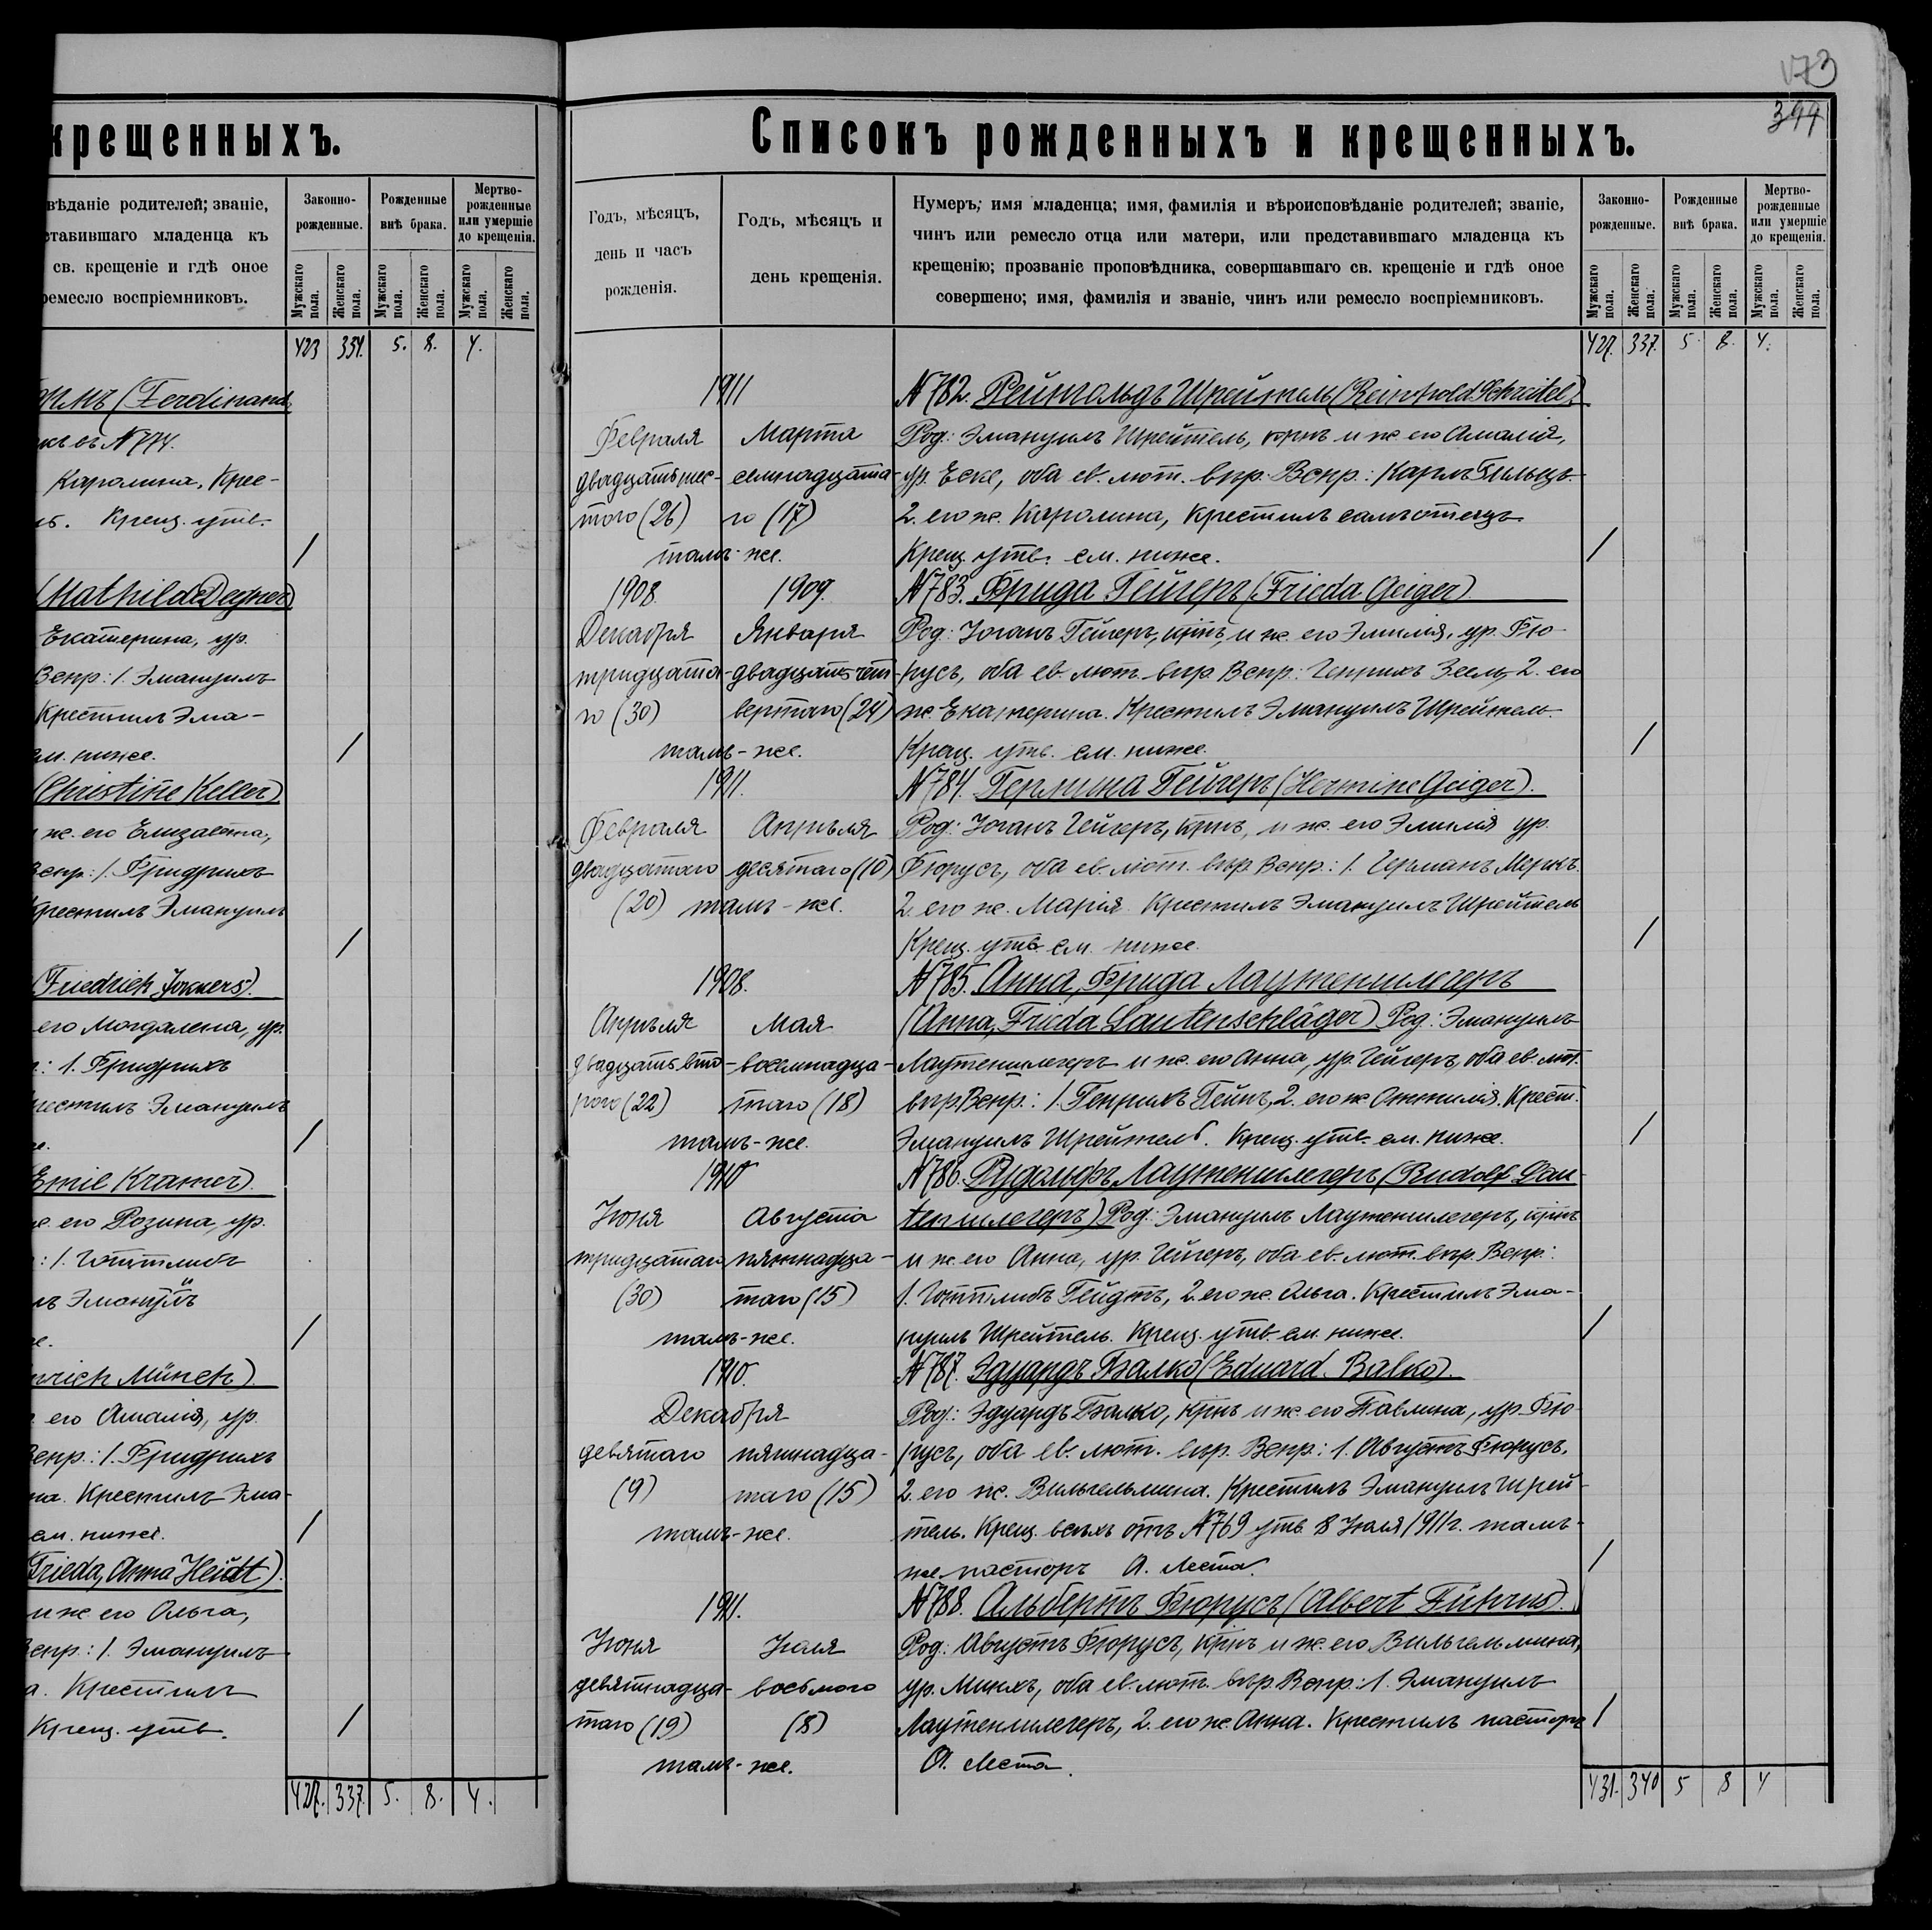 крещенныхъ.
вѣданіе родителей; званіе,
ставившаго младенца къ
св. крещеніе и гдѣ оное
ремесло воспріемниковъ.
Законно-рожденные. Рожденные внѣ брака. Мертво-рожденные или умершіе до крещенія.
Мужскаго пола. Женскаго пола. Мужскаго пола. Женскаго пола. Мужскаго пола. Женскаго пола.
423 334. 5. 8. 4.
(Ferdinand
въ N 774.
Каролина, Крес-
Крещ. утв.
/
(Mathilde Degner)
Екатерина, ур.
Вспр: 1. Эмануилъ
Крестилъ Эма-
см. ниже. /
(Christine Keller)
ж. его Елизавета,
Вспр: 1. Фридрихъ
Крестилъ Эмануилъ
/
(Friedrich Jowers).
его Магдалена, ур.
: 1. Фридрихъ
Крестилъ Эмануилъ
/
Emil Kramer).
его Розина, ур.
: 1. Готтлибъ
Эмануилъ
/
nrich Münch)
его Амалія, ур.
Вспр.: 1. Фридрихъ
на. Крестилъ Эма-
см. ниже. /
Frieda, Anna Heidt).
и ж его Ольга,
Вспр.: 1. Эмануилъ
а. Крестилъ
Крещ. утв. /
427. 337. 5. 8. 4.
173
399
Списокъ рожденныхъ и крещенныхъ.
Годъ, мѣсяцъ, день и часъ рожденія.
Годъ, мѣсяцъ и день крещенія.
Нумеръ; имя младенца; имя, фамилія и вѣроисповѣданіе родителей; званіе,
чинъ или ремесло отца или матери, или представившаго младенца къ
крещенію; прозваніе проповѣдника, совершавшаго св. крещеніе и гдѣ оное
совершено; имя, фамилія и званіе, чинъ или ремесло воспріемниковъ.
Законно-рожденные. Рожденные внѣ брака. Мертво-рожденные или умершіе до крещенія.
Мужскаго пола. Женскаго пола. Мужскаго пола. Женскаго пола. Мужскаго пола. Женскаго пола.
427. 337. 5. 8. 4.
1911 N 782. Рейнгольдъ Шрейтель (Reinhold Schreitel)
Февраля Марта Род: Эмануилъ Шрейтель, крнъ и ж. его Амалія,
двадцатьшес- семнадцата- ур. Еске, оба ев. лют. впр. Вспр.: Карлъ
того (26) го (17) 2. его ж. Каролина, Крестилъ самъ отецъ.
тамъ-же. Крещ. утв. см. ниже. /
1908. 1909. N 783. Фрида Гейгеръ (Frieda Geiger)
Декабря Января Род: Іоганъ Гейгеръ, крнъ, и ж. его Эмилія, ур. Фю-
тридцата- двадцать чет- русъ, оба ев. лют. впр. Вспр: Генрихъ Зеель, 2. его
го (30) вертаго (24) ж. Екатерина. Крестилъ Эмануилъ Шрейтель.
тамъ-же. Крещ. утв. см. ниже. /
1911. N 784. Гермина Гейгеръ (Hermine Geiger).
Февраля Апрѣля Род: Іоганъ Гейгеръ, крнъ, и ж. его Эмилія ур.
двадцатаго десятаго (10) Фюрусъ, оба ев. лют. впр. Вспр: 1. Германъ Меркъ
(20) тамъ-же. 2. его ж. Марія. Крестилъ Эмануилъ Шрейтель
Крещ. утв. см. ниже. /
1908. N 785. Анна, Фрида Лаутеншлегеръ
Апрѣля Мая (Anna, Frieda Lautenschläger) Род: Эмануилъ
двадцать вто- восемнадца- Лаутеншлегеръ и ж. его Анна, ур. Гейгеръ, оба ев. лют.
рого (22) таго (18) впр Вспр.: 1. Генрихъ Гейнъ, 2. его ж Оттилія. Крест.
тамъ-же. Эмануилъ Шрейтель. Крещ. утв. см. ниже. /
1910 N 786. Рудольфъ Лаутеншлегеръ (Rudolf Lau-
Іюня Августа tenшлегеръ) Род: Эмануилъ Лаутеншлегеръ, крнъ
тридцатаго пятнадца- и ж. его Анна, ур. Гейгеръ, оба ев. лют. впр. Вспр:
(30) таго (15) 1. Готтлибъ Гейдтъ, 2. его ж. Ольга. Крестилъ Эма-
тамъ-же. нуилъ Шрейтель. Крещ. утв. см. ниже. /
1910. N 787. Эдуардъ Балко (Eduard Balko).
Декабря Род.: Эдуардъ Балко, крнъ и ж. его Павлина, ур. Фю-
девятаго пятнадца- русъ, оба ев. лют. впр. Вспр: 1. Августъ Фюрусъ,
(9) таго (15) 2. его ж. Вильгельмина. Крестилъ Эмануилъ Шрей-
тамъ-же. тель. Крещ. всѣхъ отъ N 769 утв. 8 Іюля 1911г. тамъ-
же пасторъ А. Леста. /
1911. N 788. Альбертъ Фюрусъ (Albert Führus).
Іюня Іюля Род: Августъ Фюрусъ, крнъ и ж. его Вильгельмина,
девятнадца- восьмого ур. Минхъ, оба ев. лют. впр. Вспр: 1. Эмануилъ
таго (19) (8) Лаутеншлегеръ, 2. его ж. Анна. Крестилъ пасторъ /
тамъ-же. А. Леста.
431. 340 5 8 4